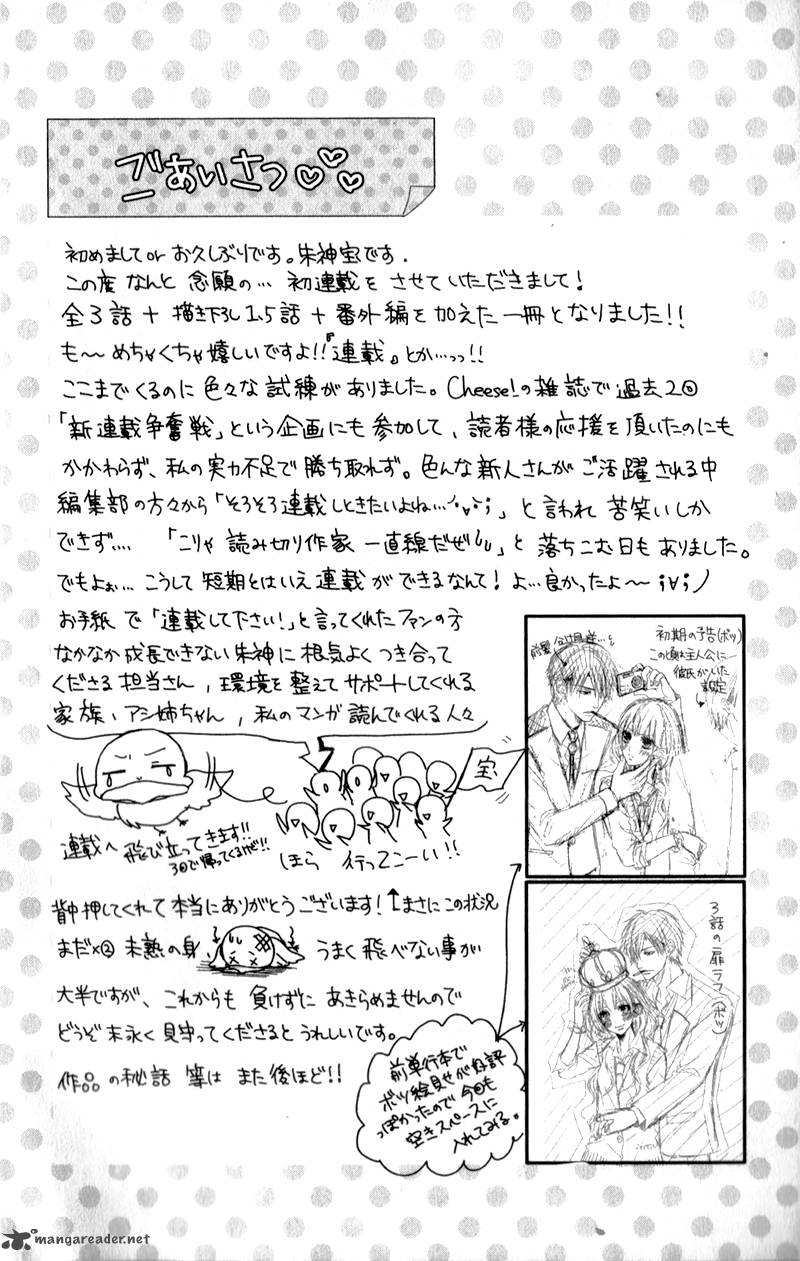 ごあいさつ♡♡♡
初めまして or お久しぶりです。朱神宝です.
この度 なんと 念願の… 初連載を させていただきまして!
全3話 + 描き下ろし1.5話 + 番外編を 加えた 一冊と なりました!!
も〜 めちゃくちゃ 嬉しいですよ!!『連載』とか…っっ!!
ここまでくるのに 色々な 試練が ありました。Cheese!の雑誌で 過去2回
「新連載争奮戦」という企画にも 参加して、読者様の応援を 頂いたのにも
かかわらず、私の実力不足で 勝ち取れず。色んな新人さんが ご活躍される中
編集部の方々から「そろそろ連載しときたいよね…」と 言われ 苦笑いしか
できず… 「こりゃ 読み切り作家 一直線だぜ」と 落ちこむ日も ありました。
でもよぉ… こうして 短期とはいえ 連載が できるなんて! よ…良かったよ〜 ;∀;ノ
お手紙で「連載して下さい!」と 言ってくれた ファンの方
なかなか 成長できない 朱神に 根気よく つき合って
くださる 担当さん, 環境を 整えて サポートしてくれる
家族、アシ姉ちゃん, 私のマンガ 読んでくれる 人々
宝
連載へ 飛び立ってきます!!
3回で帰ってくるぜ!!
ほら 行ってこーい!!
背中押してくれて 本当に ありがとうございます! ↑まさに この状況
まだ×2 未熟の身 うまく 飛べない 事が
大半ですが、これからも 負けずに あきらめませんので
どうぞ 末永く 見守ってくださると うれしいです。
作品 の 秘話 等は また後ほど!!
前単行本で
ボツ絵見せが 好評
っぽかったので 今回も
空きスペースに
入れてみる。
初期の予告(ボツ)
この頃は主人公に
彼氏がいた
設定
3話の扉ラフ(ボツ)
mangareader.net